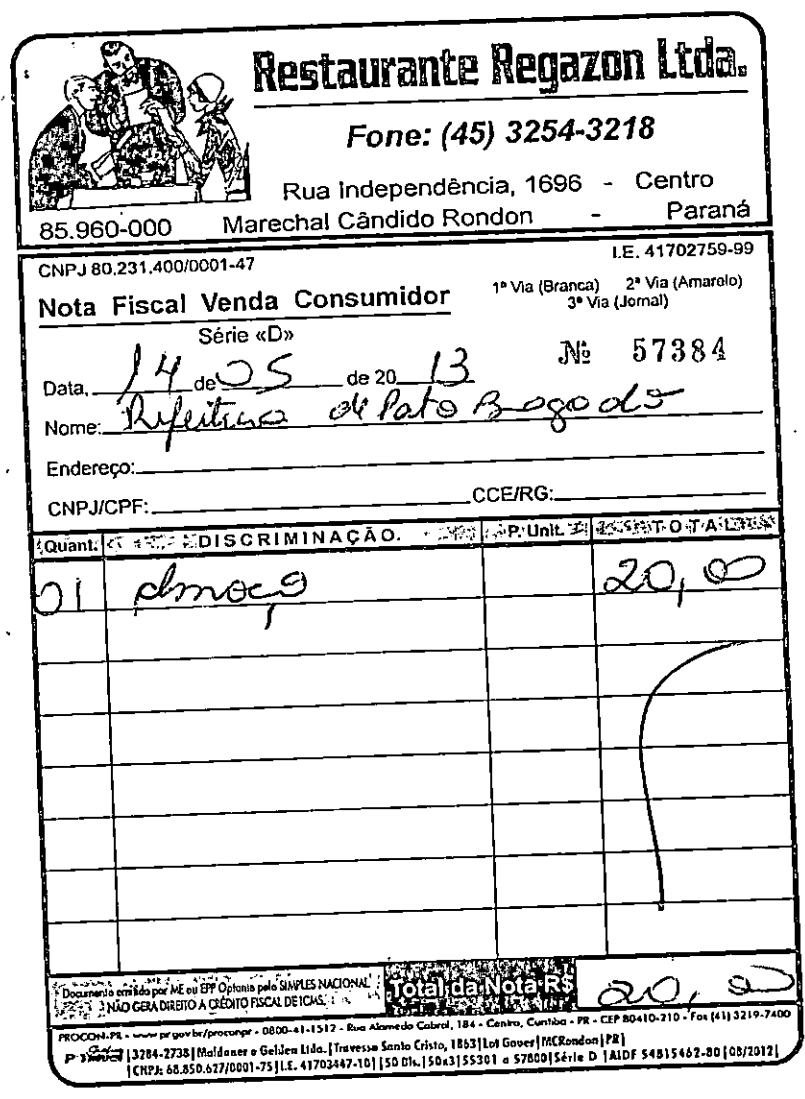 Restaurante Regazon Ltda.
Fone: (45) 3254-3218
Rua Independência, 1696 - Centro
85.960-000 Marechal Cândido Rondon - Paraná
CNPJ 80.231.400/0001-47 I.E. 41702759-99
Nota Fiscal Venda Consumidor 1ª Via (Branca) 2ª Via (Amarelo)
3ª Via (Jornal)
Série «D»
Nº 57384
Data, 14 de 05 de 20 13
Nome: de Pato Bragado
Endereço:
CNPJ/CPF: CCE/RG:
Quant. DISCRIMINAÇÃO. P. Unit. TOTAL
01 almoço 20,00
Documento emitido por ME ou EPP Optante pelo SIMPLES NACIONAL.
NÃO GERA DIREITO A CRÉDITO FISCAL DE ICMS.
Total da Nota R$ 20,00
PROCON-PR - www.pr.gov.br/proconpr - 0800-41-1512 - Rua Alameda Cabral, 184 - Centro, Curitiba - PR - CEP 80410-210 - Fax (41) 3219-7400
3284-2738 | Maldaner e Gehlen Ltda. | Travessa Santo Cristo, 1863 | Lot Gauer | MCRondon | PR |
| CNPJ: 68.850.627/0001-75 | I.E. 41703447-10 | | 50 Bls. | 50x3 | 55301 a 57800 | Série D | AIDF 54815462-80 | 08/2012 |